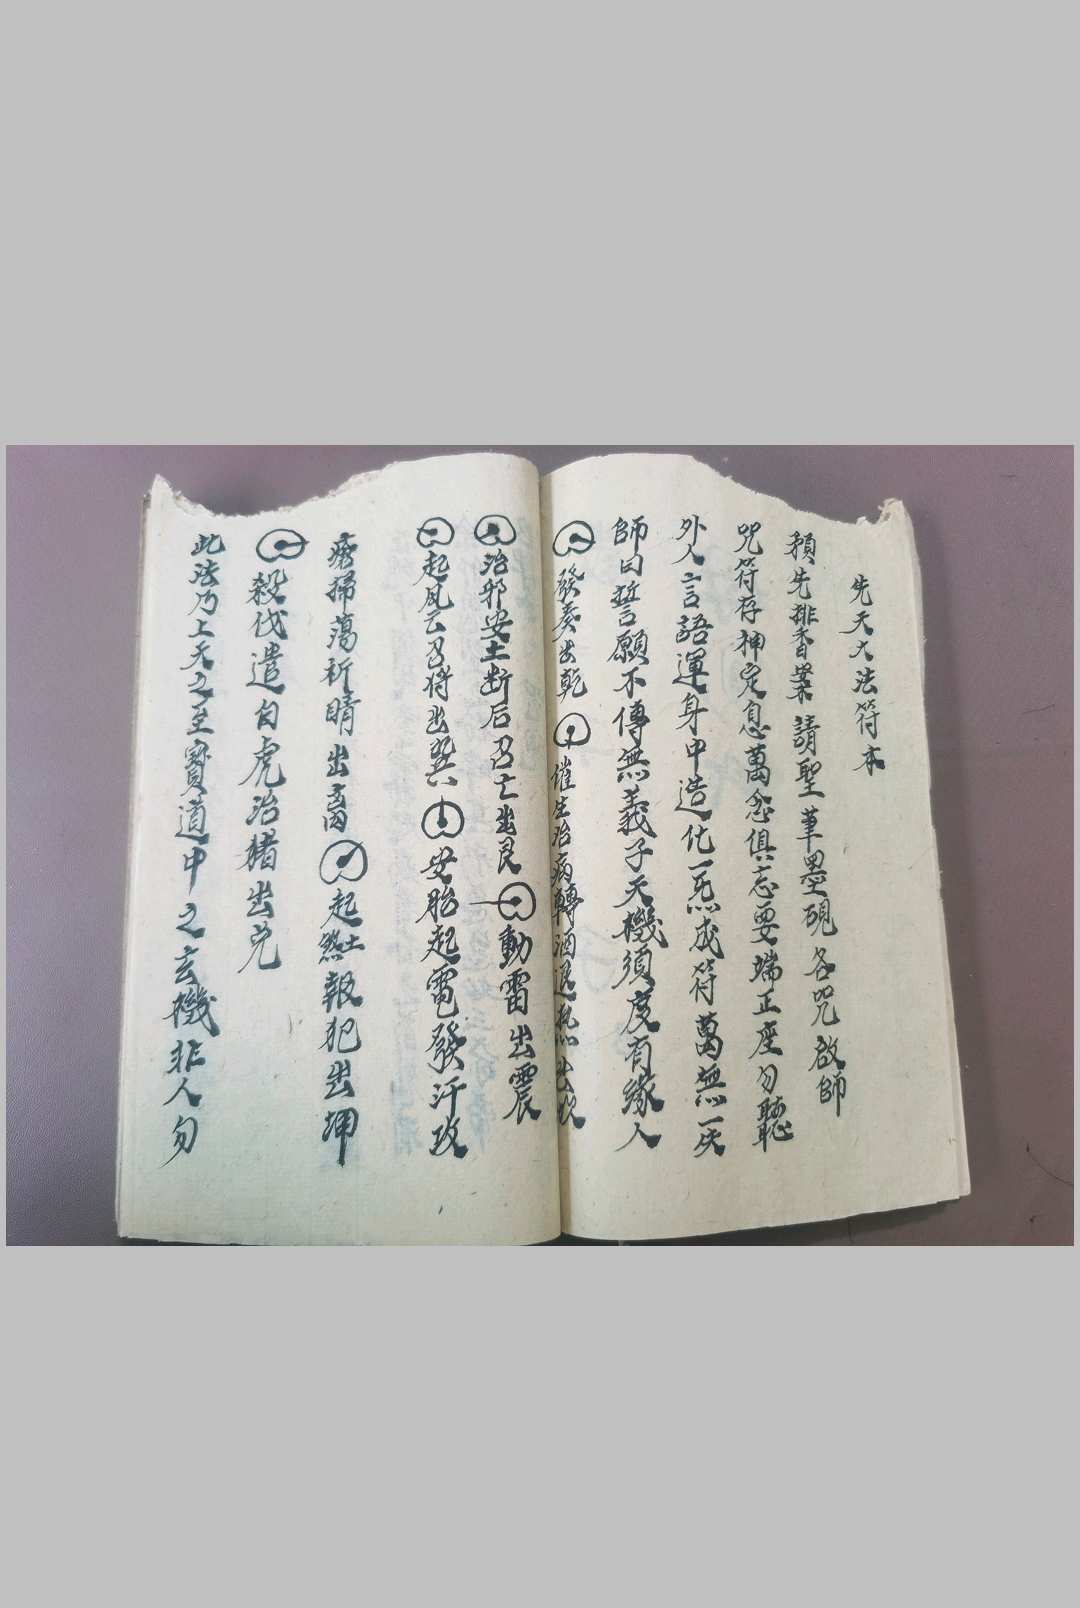 先天大法符本
須先排香案請聖筆墨硯各咒啟師
咒符存神定息萬念俱忘要端正座勿聽
外人言語運身中造化一炁成符萬無一失
師曰誓願不傳無義子天機須度有緣人
發奏出乾 催生治病轉酒退熱出坎
治邪安土断后召亡出艮 動雷出震
起風云召将出巽 安胎起電發汗攻
瘡掃蕩祈晴出离 起土煞報犯出坤
殺伐遣白虎治猪出兑
此法乃上天之至寳道中之玄機非人勿